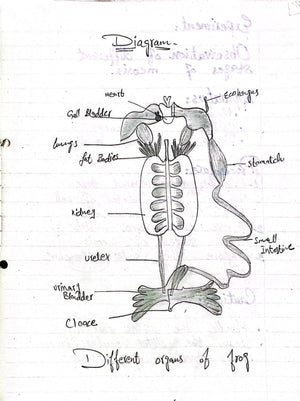 Diagram.
heart
Esophagus
Gall Bladder
lungs
fat Bodies
stomatch
kidney
Small
Intestine
ureter
urinary
Bladder
Cloace
Different organs of frog